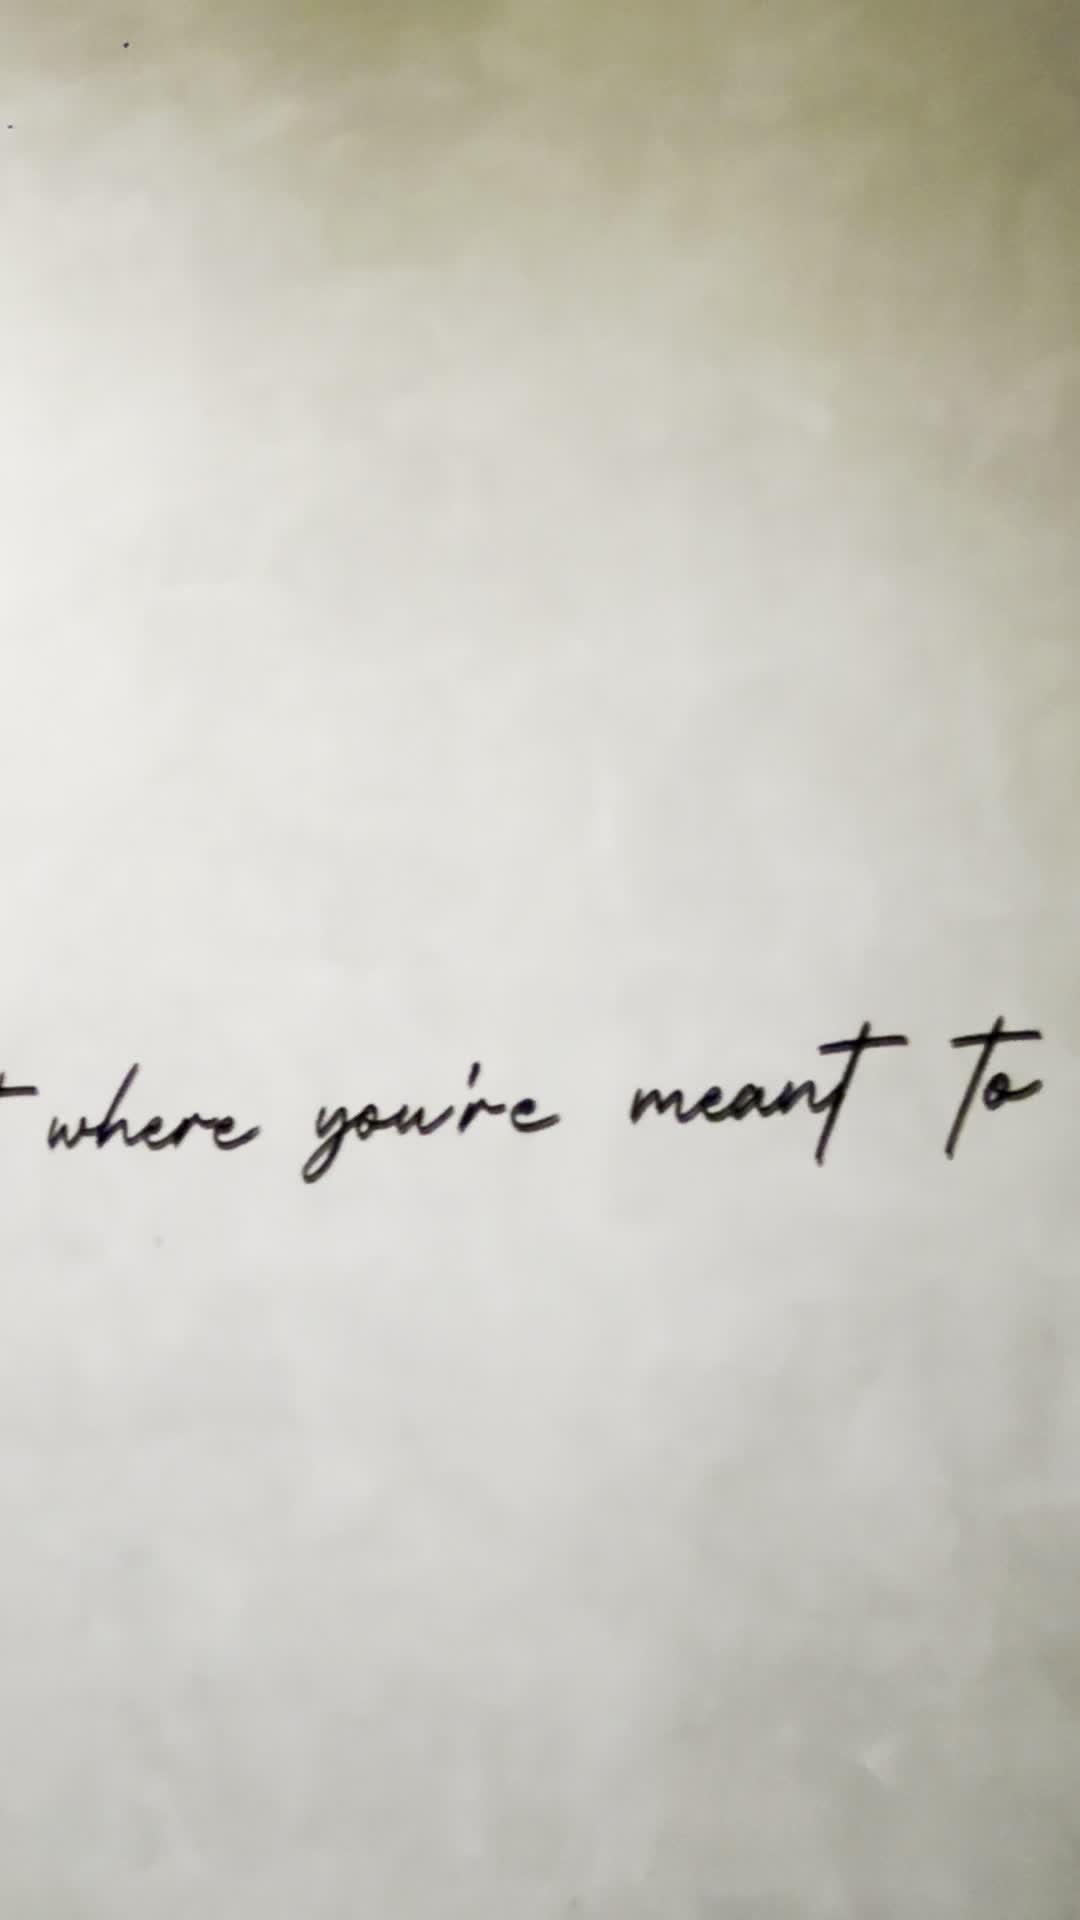 where you're meant to